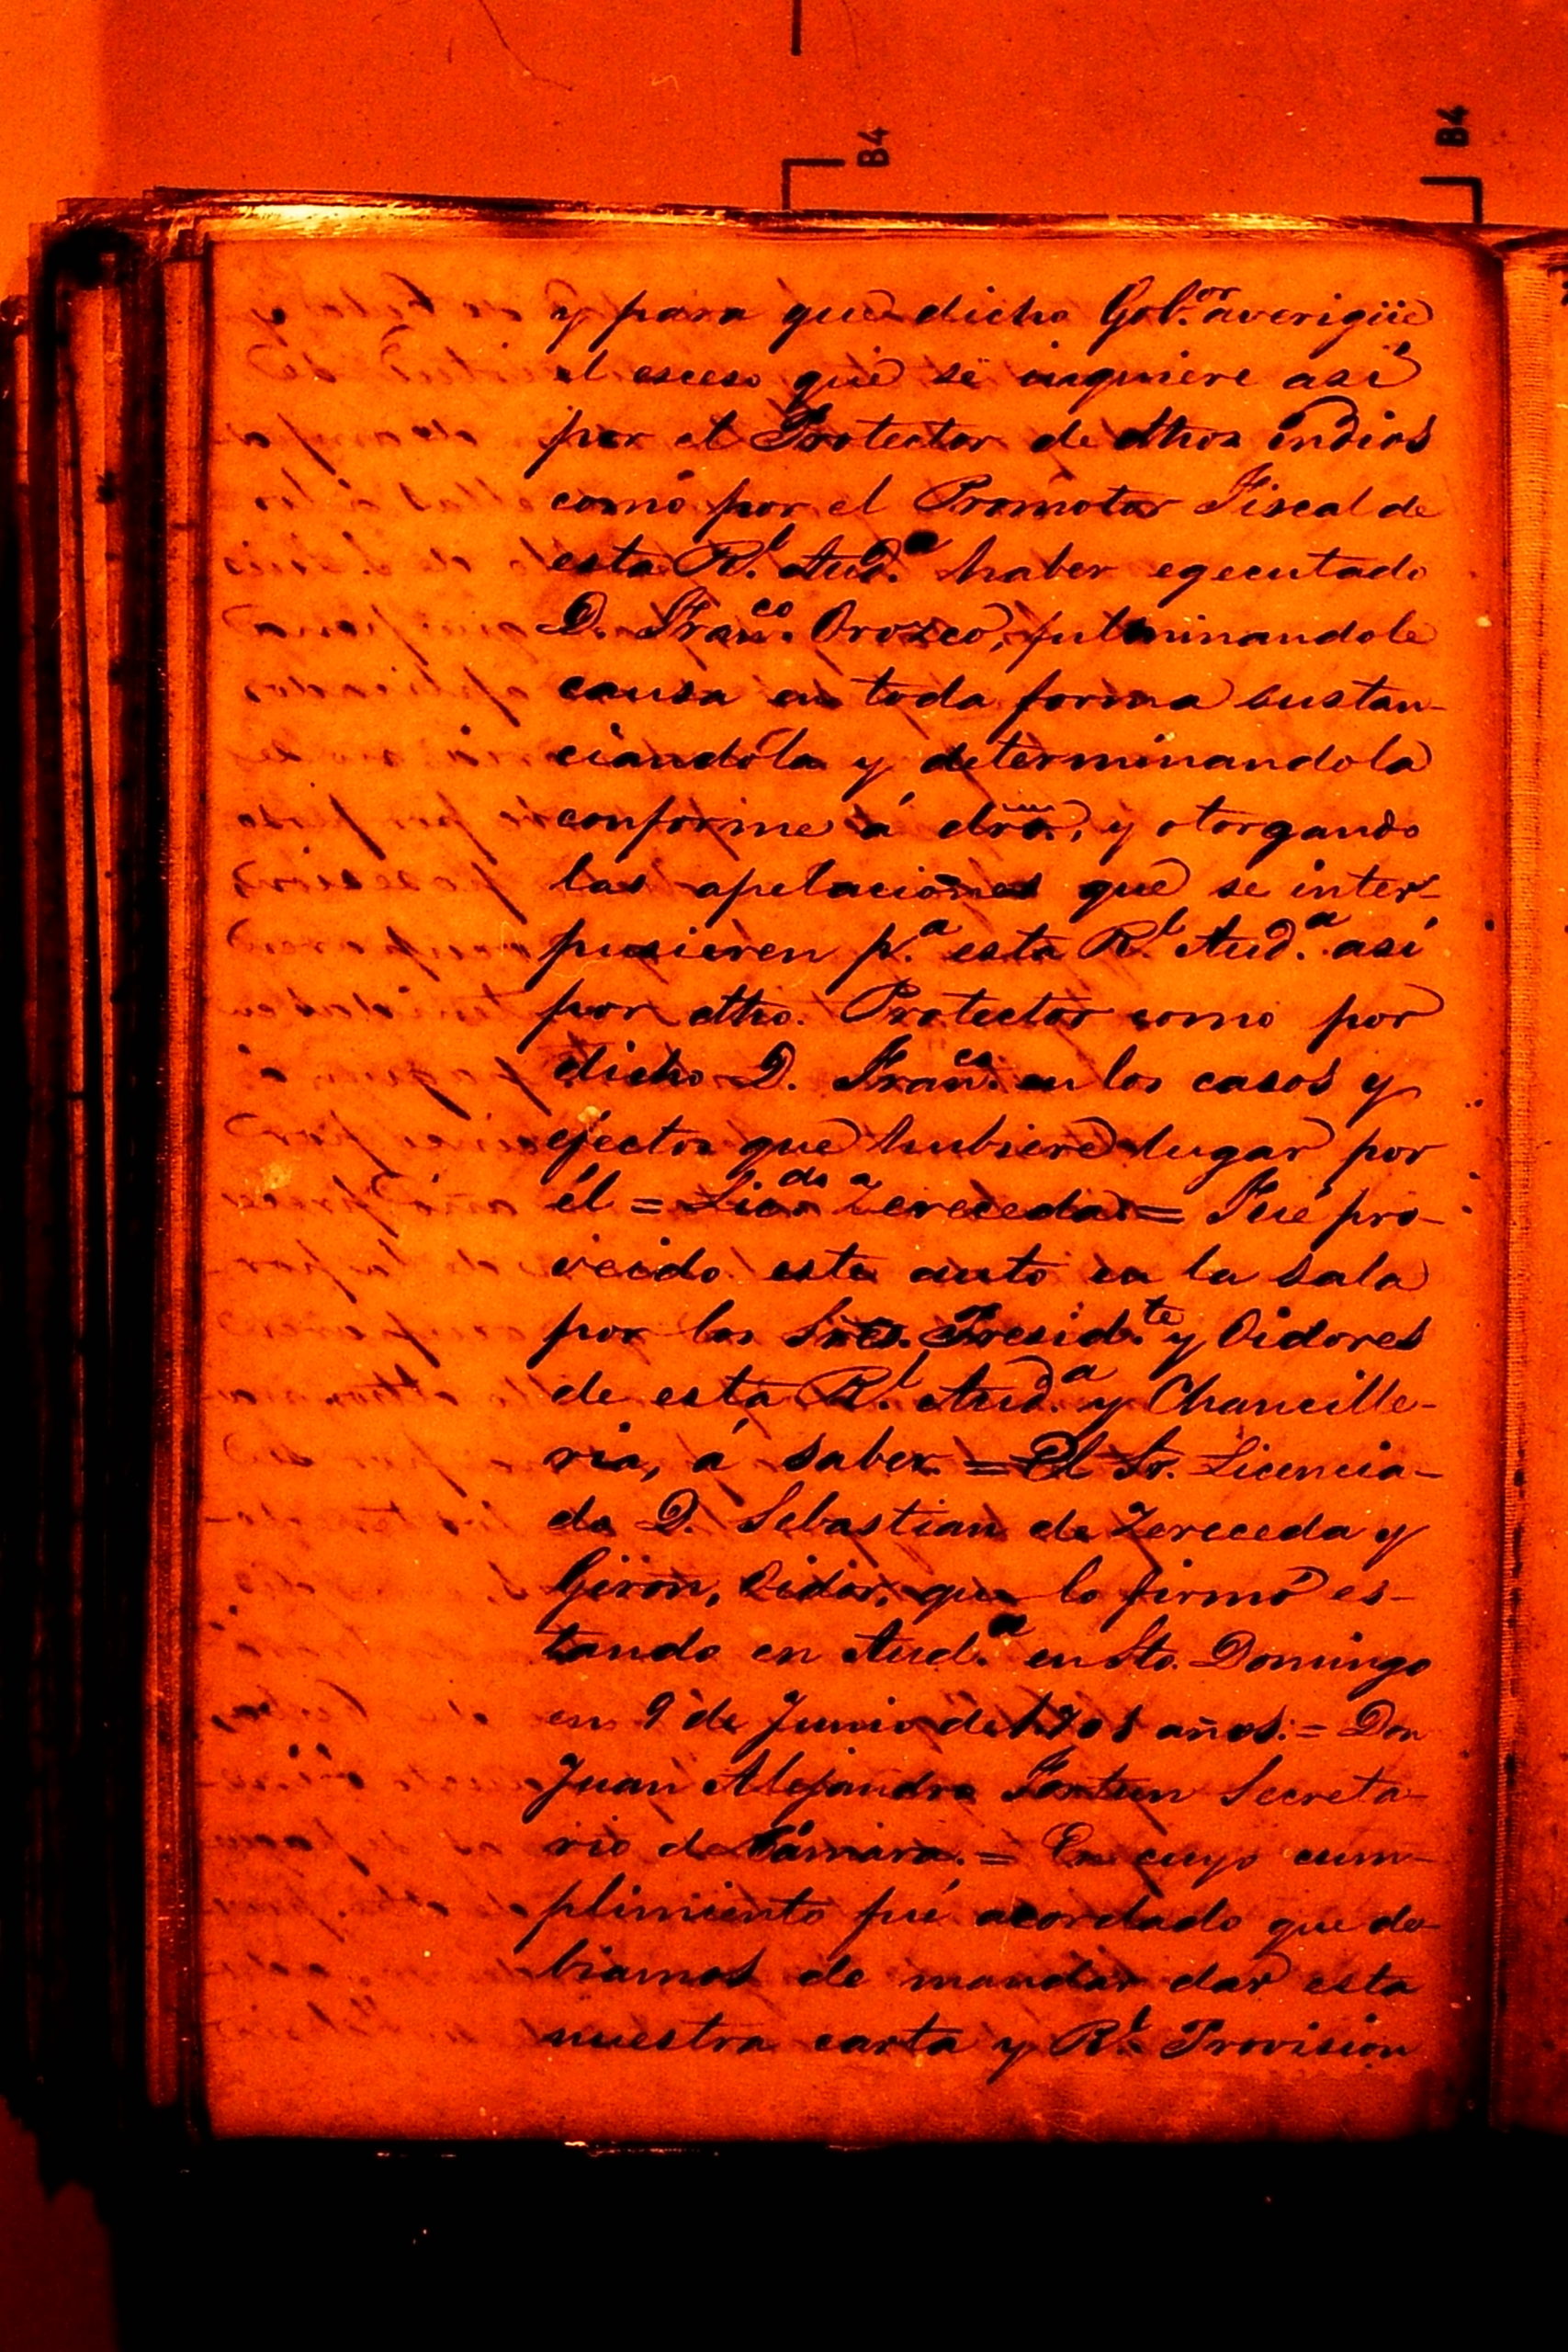 B4
B4
y para que dicho Gob.or averigüe
el esceso que se inquiere asi
por el Protector de dthos indios
como por el Promotor Fiscal de
esta Rl. Aud.a haber egecutado
D. Franco. Orozco, fulminandole
causa en toda forma sustan-
ciandola y determinandola
conforme á dro., y otorgando
las apelaciones que se inter-
pusieren p.a esta Rl. Aud.a así
por dtho. Protector como por
dicho D. Franco. en los casos y
efectos que hubiere lugar por
él = Licdo. Zereceda = Fué pro-
veido este auto en la sala
por los Sres. Presid.te y Oidores
de esta Rl. Aud.a y Chancille-
ria, á saber. = El Sr. Licencia-
do D. Sebastian de Zereceda y
Giron, Oidor, que lo firmó es-
tando en Aud.a en Sto. Domingo
en 9 de Junio de años. = Don
Juan Alejandro Fortun Secreta-
rio de Cámara. = En cuyo cum-
plimiento fué acordado que de-
biamos de mandar dar esta
nuestra carta y Rl. Provision